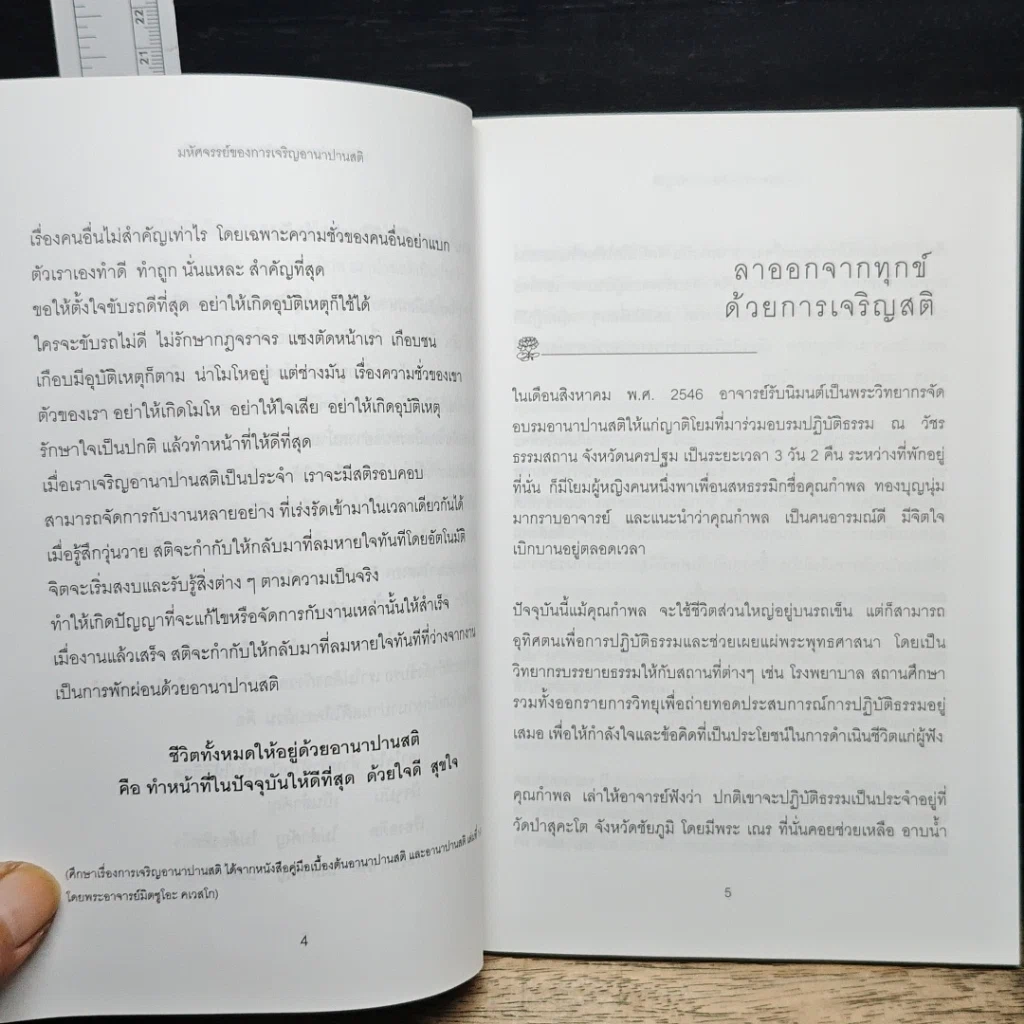 22
21
มหัศจรรย์ของการเจริญอานาปานสติ
เรื่องคนอื่นไม่สำคัญเท่าไร โดยเฉพาะความชั่วของคนอื่นอย่าแบก
ตัวเราเองทำดี ทำถูก นั่นแหละ สำคัญที่สุด
ขอให้ตั้งใจขับรถดีที่สุด อย่าให้เกิดอุบัติเหตุก็ใช้ได้
ใครจะขับรถไม่ดี ไม่รักษากฎจราจร แซงตัดหน้าเรา เกือบชน
เกือบมีอุบัติเหตุก็ตาม น่าโมโหอยู่ แต่ช่างมัน เรื่องความชั่วของเขา
ตัวของเรา อย่าให้เกิดโมโห อย่าให้ใจเสีย อย่าให้เกิดอุบัติเหตุ
รักษาใจเป็นปกติ แล้วทำหน้าที่ให้ดีที่สุด
เมื่อเราเจริญอานาปานสติเป็นประจำ เราจะมีสติรอบคอบ
สามารถจัดการกับงานหลายอย่าง ที่เร่งรัดเข้ามาในเวลาเดียวกันได้
เมื่อรู้สึกวุ่นวาย สติจะกำกับให้กลับมาที่ลมหายใจทันทีโดยอัตโนมัติ
จิตจะเริ่มสงบและรับรู้สิ่งต่าง ๆ ตามความเป็นจริง
ทำให้เกิดปัญญาที่จะแก้ไขหรือจัดการกับงานเหล่านั้นให้สำเร็จ
เมื่องานแล้วเสร็จ สติจะกำกับให้กลับมาที่ลมหายใจทันทีที่ว่างจากงาน
เป็นการพักผ่อนด้วยอานาปานสติ
ชีวิตทั้งหมดให้อยู่ด้วยอานาปานสติ
คือ ทำหน้าที่ในปัจจุบันให้ดีที่สุด ด้วยใจดี สุขใจ
(ศึกษาเรื่องการเจริญอานาปานสติ ได้จากหนังสือคู่มือเบื้องต้นอานาปานสติ และอานาปานสติ
โดยพระอาจารย์มิตซูโอะ คเวสโก)
4
ลาออกจากทุกข์
ด้วยการเจริญสติ
ในเดือนสิงหาคม พ.ศ. 2546 อาจารย์รับนิมนต์เป็นพระวิทยากรจัด
อบรมอานาปานสติให้แก่ญาติโยมที่มาร่วมอบรมปฏิบัติธรรม ณ วัชร
ธรรมสถาน จังหวัดนครปฐม เป็นระยะเวลา 3 วัน 2 คืน ระหว่างที่พักอยู่
ที่นั่น ก็มีโยมผู้หญิงคนหนึ่งพาเพื่อนสหธรรมิกชื่อคุณกำพล ทองบุญนุ่ม
มากราบอาจารย์ และแนะนำว่าคุณกำพล เป็นคนอารมณ์ดี มีจิตใจ
เบิกบานอยู่ตลอดเวลา
ปัจจุบันนี้แม้คุณกำพล จะใช้ชีวิตส่วนใหญ่อยู่บนรถเข็น แต่ก็สามารถ
อุทิศตนเพื่อการปฏิบัติธรรมและช่วยเผยแผ่พระพุทธศาสนา โดยเป็น
วิทยากรบรรยายธรรมให้กับสถานที่ต่างๆ เช่น โรงพยาบาล สถานศึกษา
รวมทั้งออกรายการวิทยุเพื่อถ่ายทอดประสบการณ์การปฏิบัติธรรมอยู่
เสมอ เพื่อให้กำลังใจและข้อคิดที่เป็นประโยชน์ในการดำเนินชีวิตแก่ผู้ฟัง
คุณกำพล เล่าให้อาจารย์ฟังว่า ปกติเขาจะปฏิบัติธรรมเป็นประจำอยู่ที่
วัดป่าสุคะโต จังหวัดชัยภูมิ โดยมีพระ เณร ที่นั่นคอยช่วยเหลือ อาบน้ำ
5